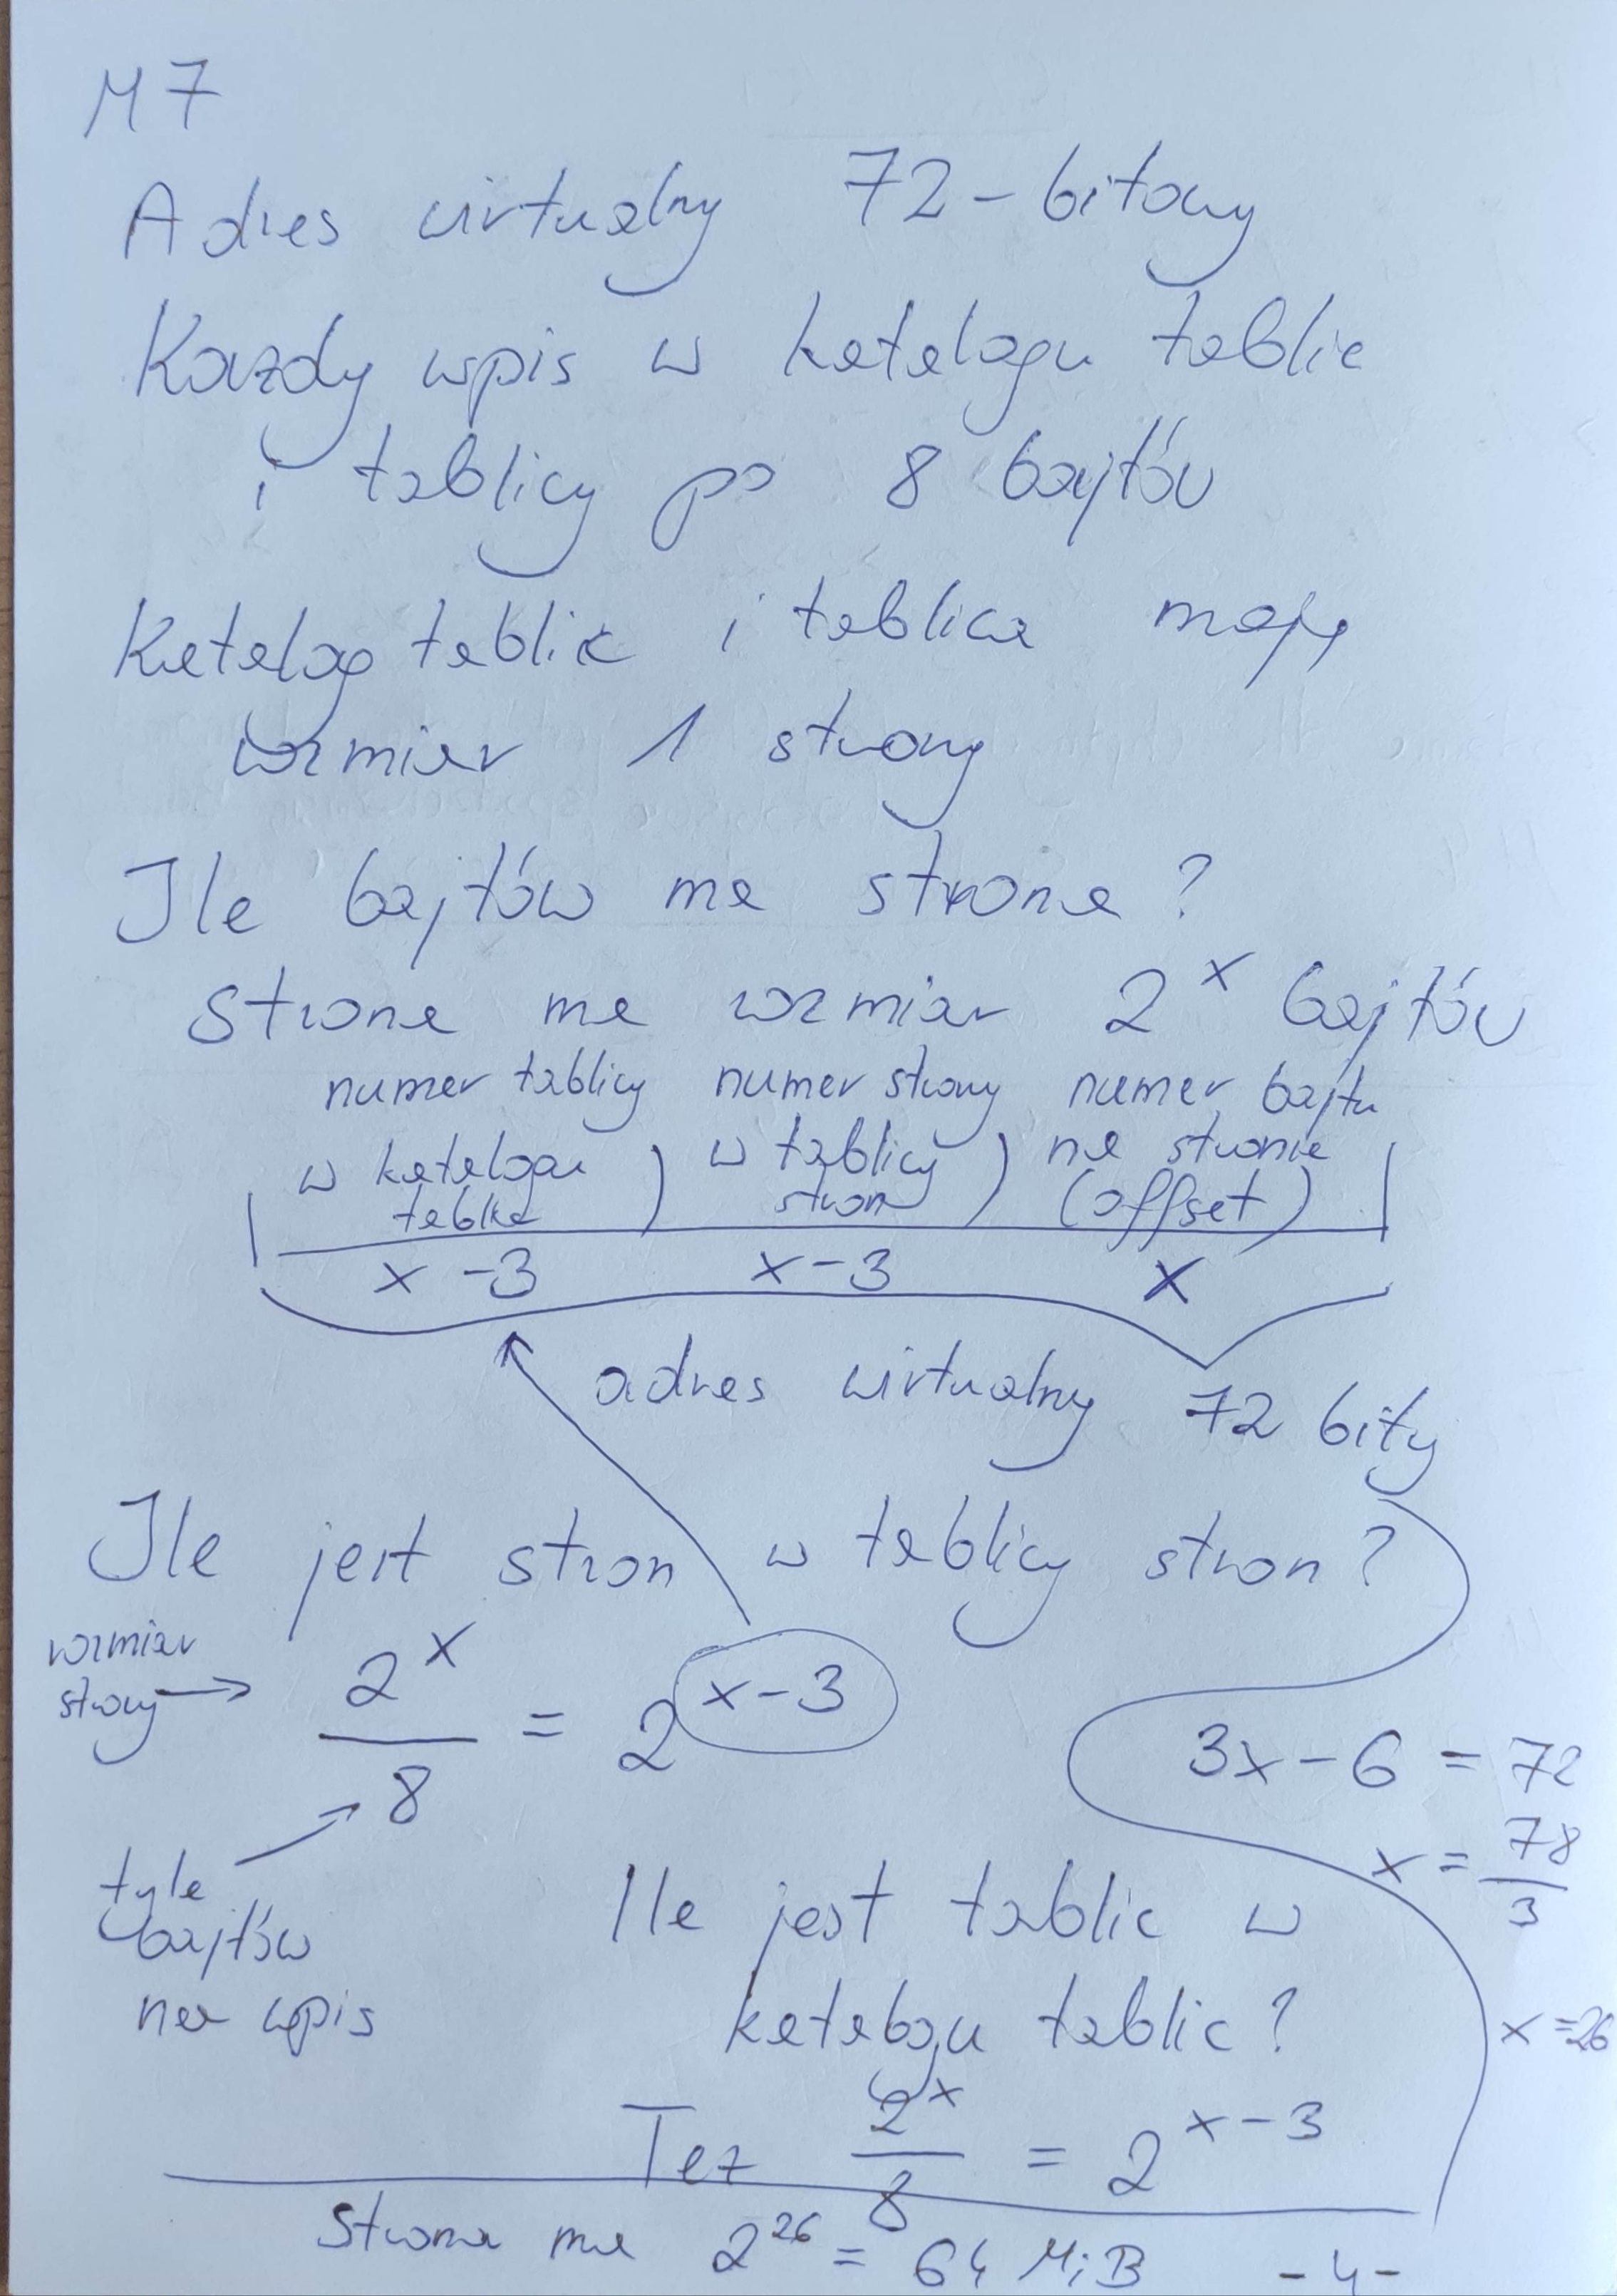 M7
Adres wirtualny 72-bitowy
Każdy wpis w katalogu tablic
i tablicy po 8 bajtów
Katalog tablic i tablica mają
rozmiar 1 strony
Ile bajtów ma strona?
Strona ma rozmiar 2^x bajtów
numer tablicy numer strony numer bajtu
w katalogu w tablicy na stronie
tablic stron (offset)
x-3 x-3 x
adres wirtualny 72 bity
Ile jest stron w tablicy stron?
rozmiar strony → 2^x / 8 = 2^(x-3)
3x-6 = 72
x = 78/3
x=26
tyle
bajtów
na wpis
Ile jest tablic w
katalogu tablic?
Też 2^x / 8 = 2^(x-3)
Strona ma 2^26 = 64 MiB -4-